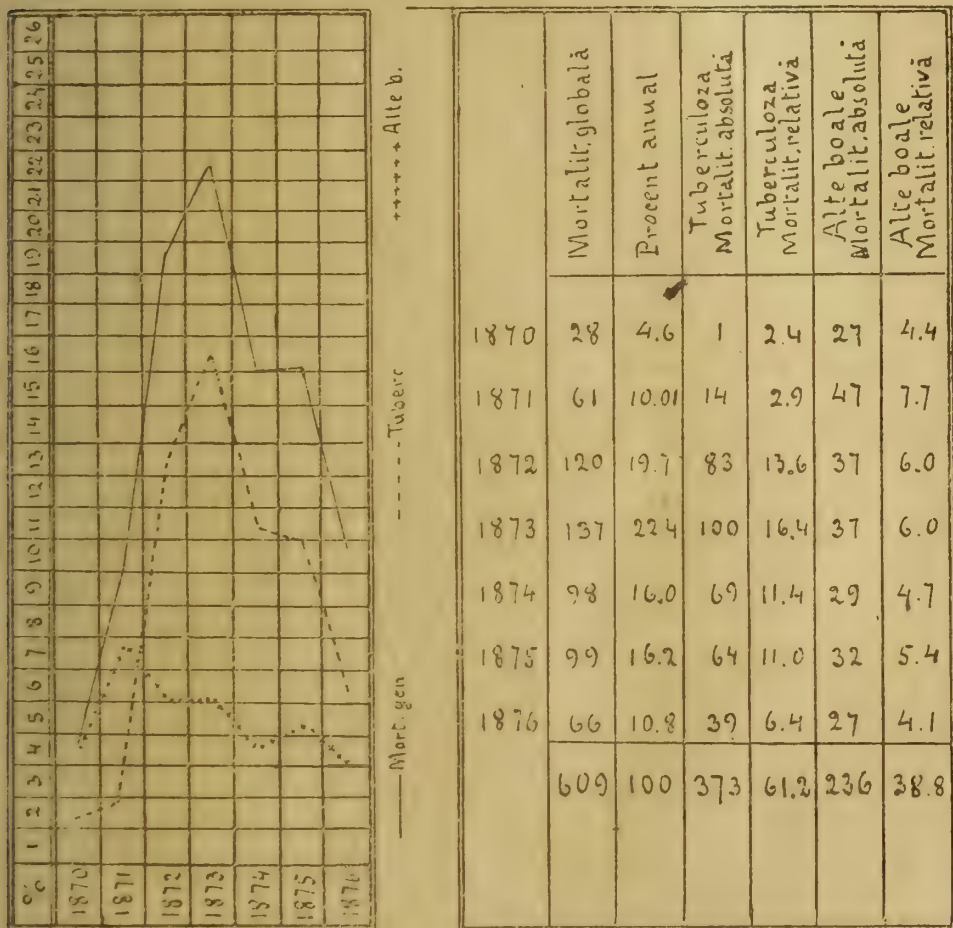 % 1 2 3 4 5 6 7 8 9 10 11 12 13 14 15 16 17 18 19 20 21 22 23 24 25 26
1870
1871
1872
1873
1874
1875
1876
—— Mort. gen ---- Tuberc +++++ Alte b.
Mortalit. globală
Procent anual
Tuberculoza
Mortalit. absolută
Tuberculoza
Mortalit. relativă
Alte boale
Mortalit. absolută
Alte boale
Mortalit. relativă
1870 28 4.6 1 2.4 27 4.4
1871 61 10.01 14 2.9 47 7.7
1872 120 19.7 83 13.6 37 6.0
1873 137 22 4 100 16.4 37 6.0
1874 98 16.0 69 11.4 29 4.7
1875 99 16.2 64 11.0 32 5.4
1876 66 10.8 39 6.4 27 4.1
609 100 373 61.2 236 38.8